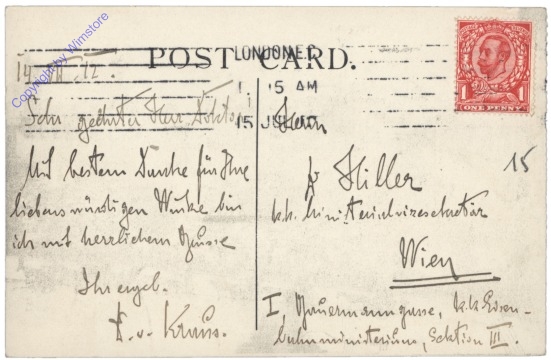 Copyright by Winstore
POST CARD.
LONDON E.C
1. 15 AM
15 JUL 12
ONE PENNY
1 1
14. VII. 12.
Sehr geehrter Herr Doktor!
Mit bestem Danke für Ihre
liebenswürdigen Winke bin
ich mit herzlichem Grusse
Ihr ergeb.
v. Krauss.
Herrn
Dr Hiller
k.k. Ministerialvizesekretär
Wien
I, Gauermanngasse, k.k. Eisen-
bahnministerium, Sektion III.
15